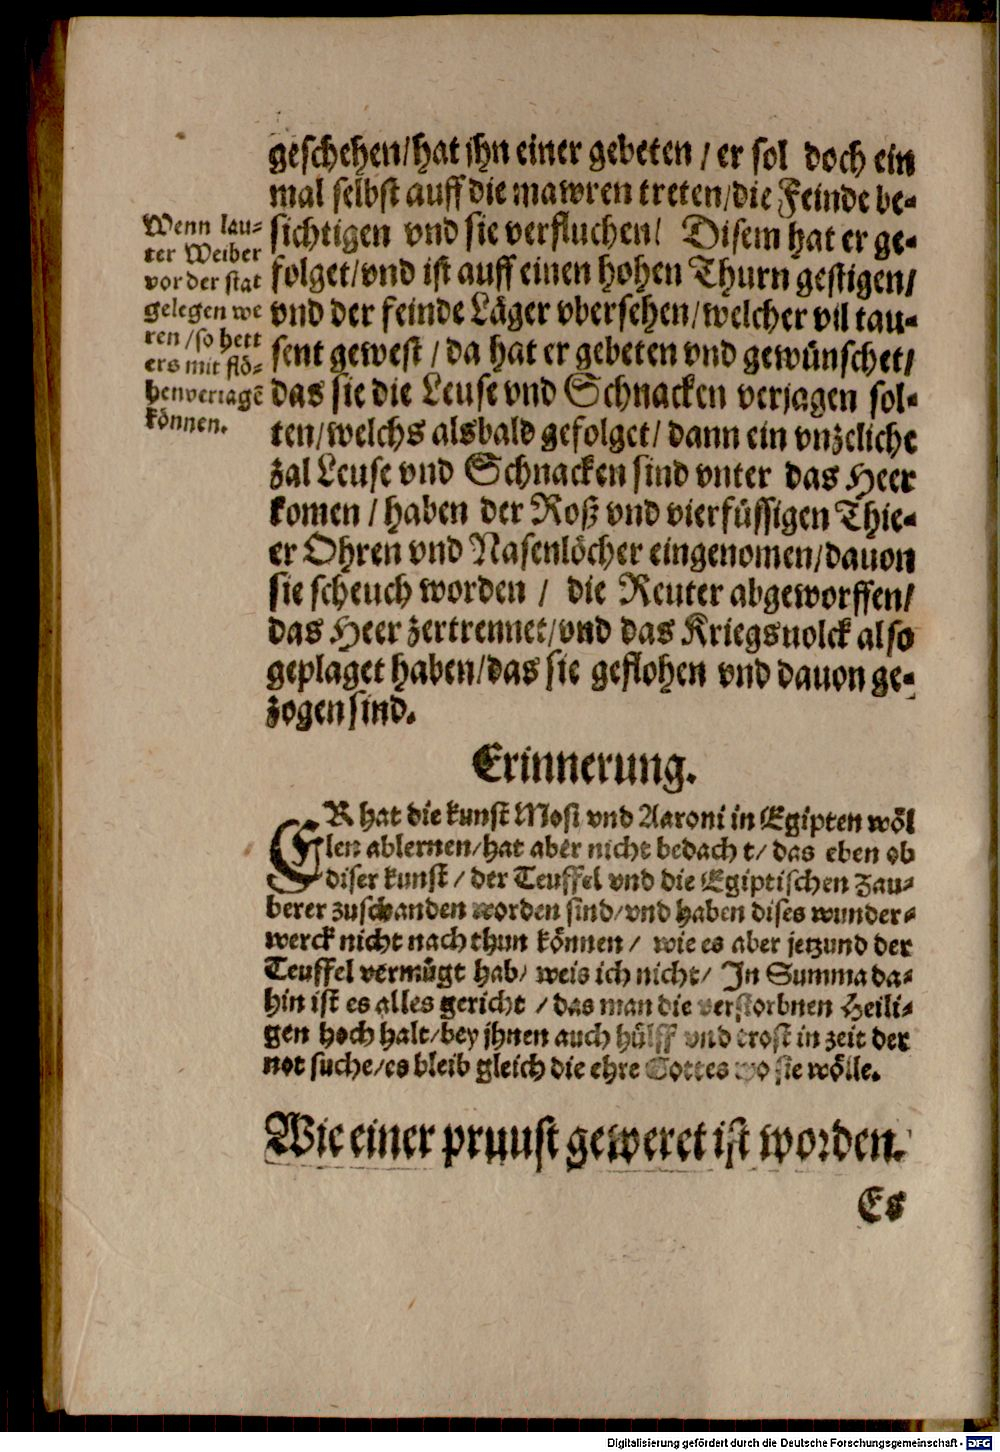 geschehen/hat jhn einer gebeten / er sol doch ein
mal selbst auff die mawren treten/die Feinde be-
sichtigen vnd sie verfluchen/ Disem hat er ge-
folget/vnd ist auff einen hohen Thurn gestigen/
vnd der feinde Läger vbersehen/welcher vil tau-
sent gewest / da hat er gebeten vnd gewünschet/
das sie die Leuse vnd Schnacken verjagen sol-
ten/welchs alsbald gefolget/ dann ein vnzeliche
zal Leuse vnd Schnacken sind vnter das Heer
komen / haben der Roß vnd vierfüssigen Thie-
er Ohren vnd Nasenlöcher eingenomen/dauon
sie scheuch worden / die Reuter abgeworffen/
das Heer zertrennet/vnd das Kriegsuolck also
geplaget haben/das sie geflohen vnd dauon ge-
zogen sind.
Wenn lau-
ter Weiber
vor der stat
gelegen we
ren /so hett
ers mit flö-
hen veriagẽ
können.
Erinnerung.
ER hat die kunst Mosi vnd Aaroni in Egipten wöl
len ablernen/hat aber nicht bedach t/ das eben ob
diser kunst / der Teuffel vnd die Egiptischen Zau-
berer zuschanden worden sind/vnd haben dises wunder-
werck nicht nach thun können / wie es aber jetzund der
Teuffel vermügt hab/ weis ich nicht/ In Summa da-
hin ist es alles gericht / das man die verstorbnen Heili-
gen hoch halt/bey jhnen auch hülff vnd trost in zeit der
not suche/es bleib gleich die ehre Gottes wo sie wölle.
Wie einer prunst geweret ist worden.
Es
Digitalisierung gefördert durch die Deutsche Forschungsgemeinschaft - DFG